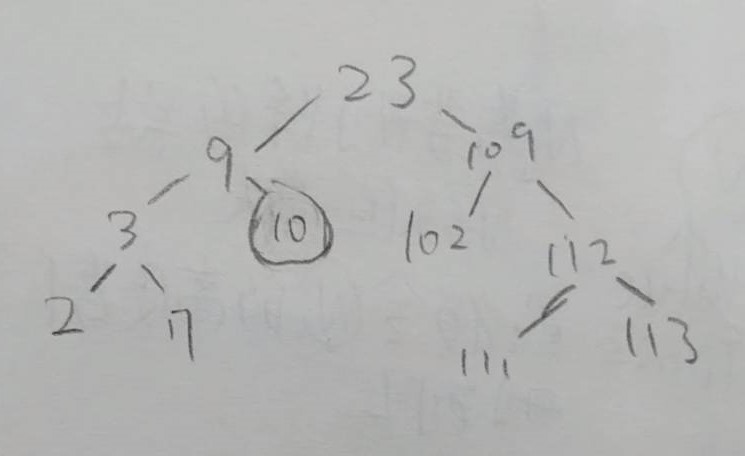 23
9 109
3 10 102 112
2 7 111 113